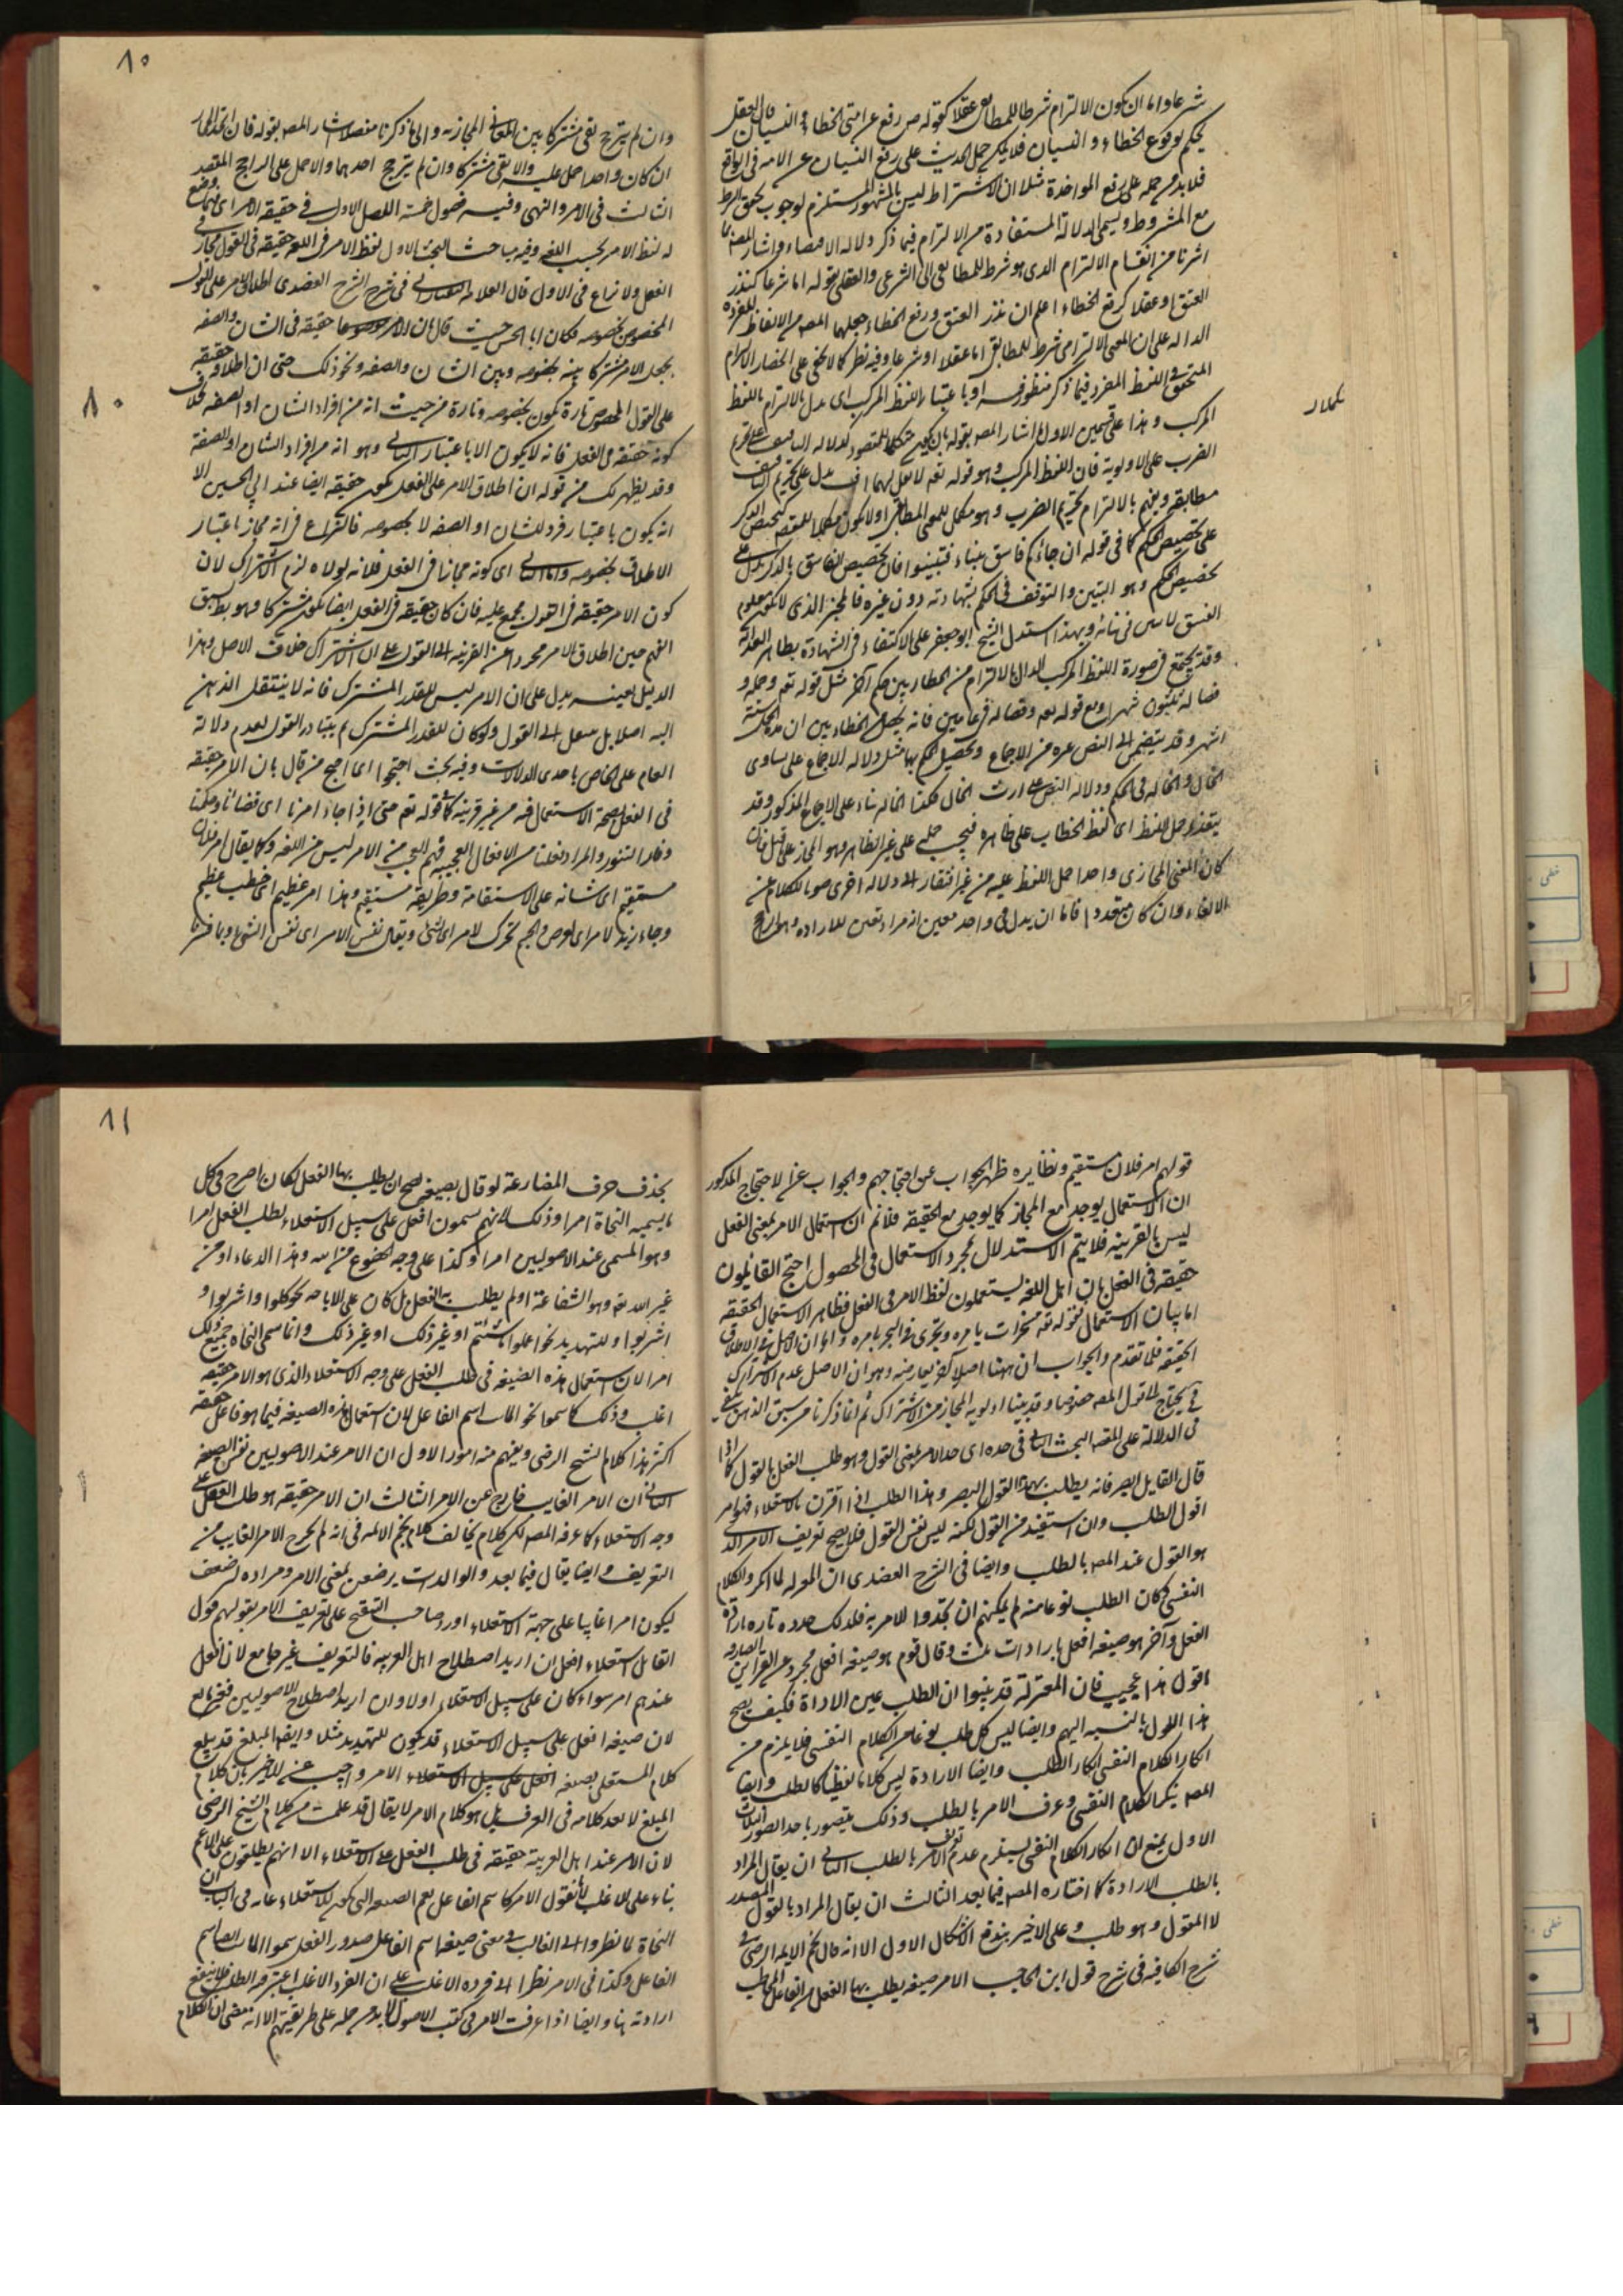 شرعا واما ان يكون الالتزام شرطا للمطابق عقلا كقوله ص رفع عن امتي الخطاء والنسيان فان العقل
يحكم بوقوع الخطاء والنسيان فلا يمكن حمل الحديث على رفع النسيان عن الامة في الواقع
فلا بد من حمله على رفع المواخذة مثلا ان الاشتراط ليس بالمشهور المستلزم لوجوب تحقق الشرط
مع المشروط ويسمى الدلالة المستفادة من الالتزام فيما ذكر دلالة الاقتضاء واشار المصنف لما
اشرنا من انقسام الالتزام الذي هو شرط للمطابقى الى الشرعى والعقلى بقوله اما شرعا كنذر
العتق او عقلا كرفع الخطاء اعلم ان نذر العتق ورفع الخطاء جعلهما المصه من الالفاظ المفردة
الدالة على ان المعنى الالتزامى شرط للمطابق اما عقلا او شرعا وفيه نظر كما لا يخفى على انحصار الالتزام
المتحقق في اللفظ المفرد فيما ذكر منظور فيه او باعتبار اللفظ المركب اى يدل بالالتزام باللفظ
المركب وهذا على قسمين الاول ما اشار المصه بقوله بان يكون مكملا للمقصود كدلالة التافيف على تحريم
الضرب على الاولوية فان اللفظ المركب وهو قوله تعم لا تقل لهما اف يدل على تحريم التافيف
مطابقة ويفهم بالالتزام تحريم الضرب وهو مكمل للمعنى المطابقى او لا يكون مكملا للمقصود كتخصيص الذكر
على تخصيص الحكم كما في قوله ان جائكم فاسق بنباء فتبينوا فان تخصيص الفاسق بالذكر يدل على
تخصيص الحكم وهو التبين والتوقف في الحكم بشهادته دون غيره فالمخبر الذي لا يكون معلوم
الفسق لا يبين في نبائه وبهذا استدل الشيخ ابو جعفر على الاكتفاء في الشهادة بظاهر العدالة
وقد يجتمع في صورة اللفظ المركب الدال بالالتزام من الخطابين حكم آخر مثل قوله تعم وحمله و
فصاله ثلثون شهرا ومع قوله تعم وفصاله في عامين فانه يحصل الخطابين ان مدة الحمل ستة
اشهر وقد ينضم الى النص غيره من الاجماع ويحصل الحكم بهما مثل دلالة الاجماع على تساوى
الخال والخالة في الحكم ودلالة النص على ارث الخال فكذا الخالة بناء على الاجماع المذكور وقد
يتعذر حمل اللفظ اى لفظ الخطاب على ظاهره فيجب حمله على غير الظاهر وهو المجاز على قبيل فان
كان المعنى المجازى واحدا حمل اللفظ عليه من غير افتقار الى دلالة اخرى صونا للكلام عن
الالغاء وان كان متعددا فاما ان يدل في واحد معين انه مراد تعين للارادة وهو الراجح
٨٠
وان لم يترجح بقى مشتركا بين المعانى المجازيه والى ما ذكرنا مفصلا اشار المصه بقوله فان اتحد المجاز
ان كان واحدا حمل عليه والا بقى مشتركا وان لم يترجح احدهما والا حمل على الراجح المقصد
الثالث في الامر والنهى وفيه فصول خمسة الفصل الاول في حقيقة الامر اى ما وضع
له لفظ الامر بحسب اللغة وفيه مباحث البحث الاول لفظ الامر في اللغة حقيقة في القول مجاز في
الفعل ولا نزاع في الاول قال العلامة التفتازانى في شرح الشرح العضدى اطلاق الامر على القول
المخصوص بخصوصه فكان ابا الحسين حيث قال ان الامر موضوعا حقيقة في الشان والصفه
يجعل الامر مشتركا بينه بخصوصه وبين الشان والصفه ونحو ذلك حتى ان اطلاقه حقيقة
على القول المخصوص تارة يكون بخصوصه وتارة من حيث انه من افراد الشان او الصفه بخلاف
كونه حقيقة في الفعل فانه لا يكون الا باعتبار الثانى وهو انه من افراد الشان او الصفة
وقد يظهر لك من قوله ان اطلاق الامر على الفعل يكون حقيقة ايضا عند ابي الحسين الا
انه يكون باعتبار فرد للشان او الصفه لا بخصوصه فالنزاع في انه مجاز باعتبار
الاطلاق بخصوصه واما الثانى اى كونه مجازا في الفعل فلانه لولاه لزم الاشتراك لان
كون الامر حقيقة في القول مجمع عليه فان كان حقيقة في الفعل ايضا يكون مشتركا وهو بط لسبق
الفهم حين اطلاق الامر مجردا عن القرينه الى القول على ان الاشتراك خلاف الاصل وهذا
الدليل بعينه يدل على ان الامر ليس للقدر المشترك فانه لا ينتقل الذهن
اليه اصلا بل ينتقل الى القول ولو كان للقدر المشترك لم يتبادر القول لعدم دلالة
العام على الخاص باحدى الدلالات وفيه بحث احتجوا اى احتج من قال بان الامر حقيقة
في الفعل بصحة الاستعمال فيه من غير قرينة كما قوله تعم حتى اذا جاء امرنا اى قضائنا وحكمنا
وفار التنور والمراد فعلنا من الافعال العجيبة فهم العجيب من الامر ليس من اللغة وكما يقال امر فلان
مستقيم اى شانه على الاستقامة وطريقة مستقيم وهذا امر عظيم اى خطب عظيم
وجاء زيد لامر اى لغرض والجسم تحرك لامر اى لشئ ويقال نفس الامر اى نفس الشئ وبما فسرنا
٨٠
قولهم امر فلان مستقيم ونظايره ظهر الجواب عن احتجاجهم والجواب عن الاحتجاج المذكور
ان الاستعمال يوجد مع المجاز كما يوجد مع الحقيقة فلا نم ان استعمال الامر بمعنى الفعل
ليس بالقرينه فلا يتم الاستدلال بمجرد الاستعمال في الحصول احتج القائلون
حقيقة في الفعل بان اهل اللغه يستعملون لفظ الامر في الفعل فظاهر الاستعمال الحقيقة
اما بيان الاستعمال فقوله تعه مسخرات بامره وتجرى في البحر بامره واما ان الاصل في الاطلاق
الحقيقة فلما تقدم والجواب ان ههنا اصلا آخر يعارضه وهو ان الاصل عدم الاشتراك
في يحتاج الى قول المصه خصوصا وقد بينا اولوية المجاز من الاشتراك ثم انما ذكرنا من سبق الذهن يكفى
في الدلالة على المقصد البحث الثانى في حده اى حد الامر بمعنى القول وهو طلب الفعل بالقول كما اذا
قال القايل ابصر فانه يطلب بهذا القول البصر وهذا الطلب اذا اقترن بالاستعلاء فهو امر
اقول الطلب وان استفيد من القول لكنه ليس نفس القول فلا يصح تعريف الامر الذى
هو القول عند المصه بالطلب وايضا في الشرح العضدى ان المعتزلة لما انكروا الكلام
النفسى وكان الطلب نوعا منه لم يمكنهم ان يحدوا الامر به فلذلك حدوده تارة بارادة
الفعل وآخر هو صيغه افعل بارادات ثلث وقال قوم هو صيغه افعل مجرده عن القراين الصارفه
اقول هذا عجيب فان المعتزلة قد بينوا ان الطلب عين الارادة فكيف يصح
هذا القول بالنسبه اليهم وايضا ليس كل طلب نوعا من الكلام النفسى فلا يلزم من
انكار الكلام النفسى انكار الطلب وايضا الارادة ليس كلاما لفظيا كالطلب وايضا
المصه ينكر الكلام النفسى وعرف الامر بالطلب وذلك يتصور باحد الصور الثلاث
الاول يمنع ان انكار الكلام النفسى يستلزم عدم تعريف الامر بالطلب الثانى ان يقال المراد
بالطلب الارادة كما اختاره المصه فيما بعد الثالث ان يقال المراد بالقول المصدر
لا المقول وهو طلب وعلى الاخير يندفع الاشكال الاول الا انه قال نجم الائمه الرضى في
شرح الكافيه في شرح قول ابن الحاجب الامر صيغه يطلب بها الفعل من الفاعل المخاطب
٨١
بحذف حرف المضارعة لو قال بصيغه يصح ان يطلب بها الفعل لكان اصرح في كل
ما يسميه النحاة امرا وذلك لانهم يسمون افعل على سبيل الاستعلاء لطلب الفعل امرا
وهو المسمى عند الاصوليين امرا وكذا على وجه الخضوع من الله وهذا الدعاء او من
غير الله تعه وهو الشفاعة او لم يطلب به الفعل بل كان على الاباحه نحو كلوا واشربوا و
اشربوا وللتهديد نحو اعملوا ما شئتم او غير ذلك وانما سمى النحاة جميع ذلك
امرا لان استعمال هذه الصيغه في طلب الفعل على وجه الاستعلاء الذى هو الامر حقيقة
اغلب وذلك كما سموا نحو المائت اسم الفاعل لان استعمال هذه الصيغه فيما هو فاعل حقيقة
اكثر هذا كلام الشيخ الرضى ويفهم منه امور الاول ان الامر عند الاصوليين نفس الصيغه
الثانى ان الامر الغايب خارج عن الامر الثالث ان الامر حقيقة هو طلب الفعل على
وجه الاستعلاء كما عرفه المصه لكن كلام يخالف كلام نجم الائمه في انه لم يخرج الامر الغايب من
التعريف وايضا يقال فيما بعد والوالدات يرضعن بمعنى الامر ومراده ليرضعن
ليكون امرا غايبا على جهة الاستعلاء اورد صاحب التنقيح على تعريف الامر بقولهم قول
القائل استعلاء افعل ان اريد اصطلاح اهل العربيه فالتعريف غير جامع لان افعل
عندهم امر سواء كان على سبيل الاستعلاء اولا وان اريد اصطلاح الاصوليين فغير مانع
لان صيغه افعل على سبيل الاستعلاء قد يكون للتهديد مثلا وايضا المبلغ قد يبلغ
كلام المستعلى بصيغه افعل على سبيل الاستعلاء الامر واجيب عن الاخير بان كلام
المبلغ لا يعد كلامه في العرف بل هو كلام الامر لا يقال قد علمت من كلام الشيخ الرضى
لان الامر عند اهل العربية حقيقة في طلب الفعل على الاستعلاء الا انهم يطلقون على الاعم
بناء على الاغلب لانا نقول الامر كاسم الفاعل يعم الصيغه التى يكون للاستعلاء غايه في الباب ان
النحاة لما نظروا الى الغالب في معنى صيغه اسم الفاعل صدور الفعل سموا المائت باسم
الفاعل وكذا في الامر نظرا الى فرده الاغلب على ان الفرد الاغلب اعتبر فيه الطلب فلا ينفع
ارادته هنا وايضا اذا عرفت الامر في كتب الاصول لا بد من حمله على طريقتهم الا انه مقتضى ان الكلام